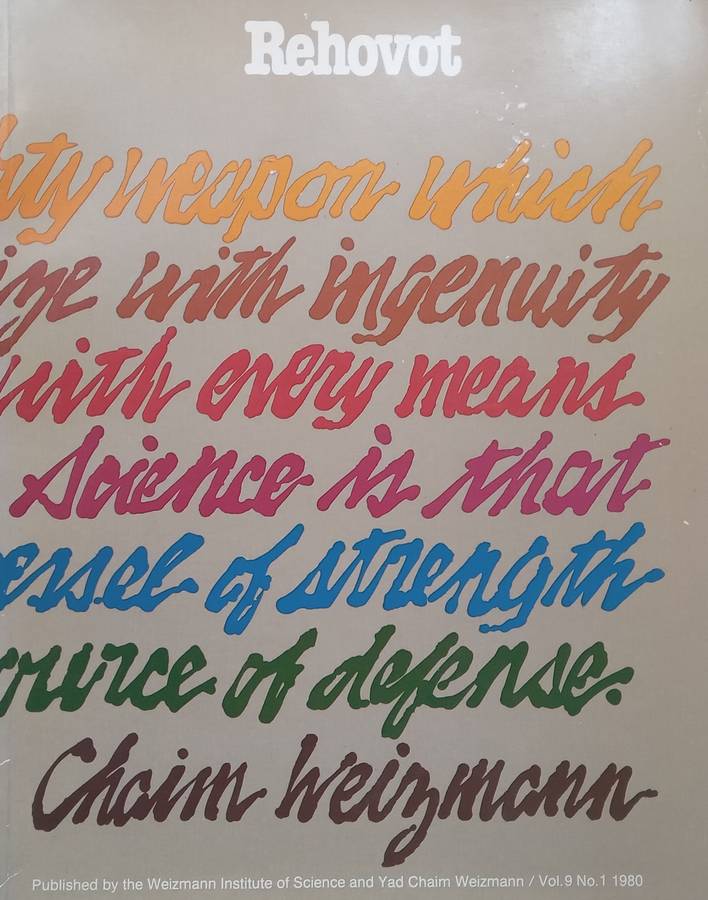 Rehovot
hty weapon which
ize with ingenuity
with every means
Science is that
essel of strength
ource of defense.
Chaim Weizmann
Published by the Weizmann Institute of Science and Yad Chaim Weizmann / Vol.9 No.1 1980